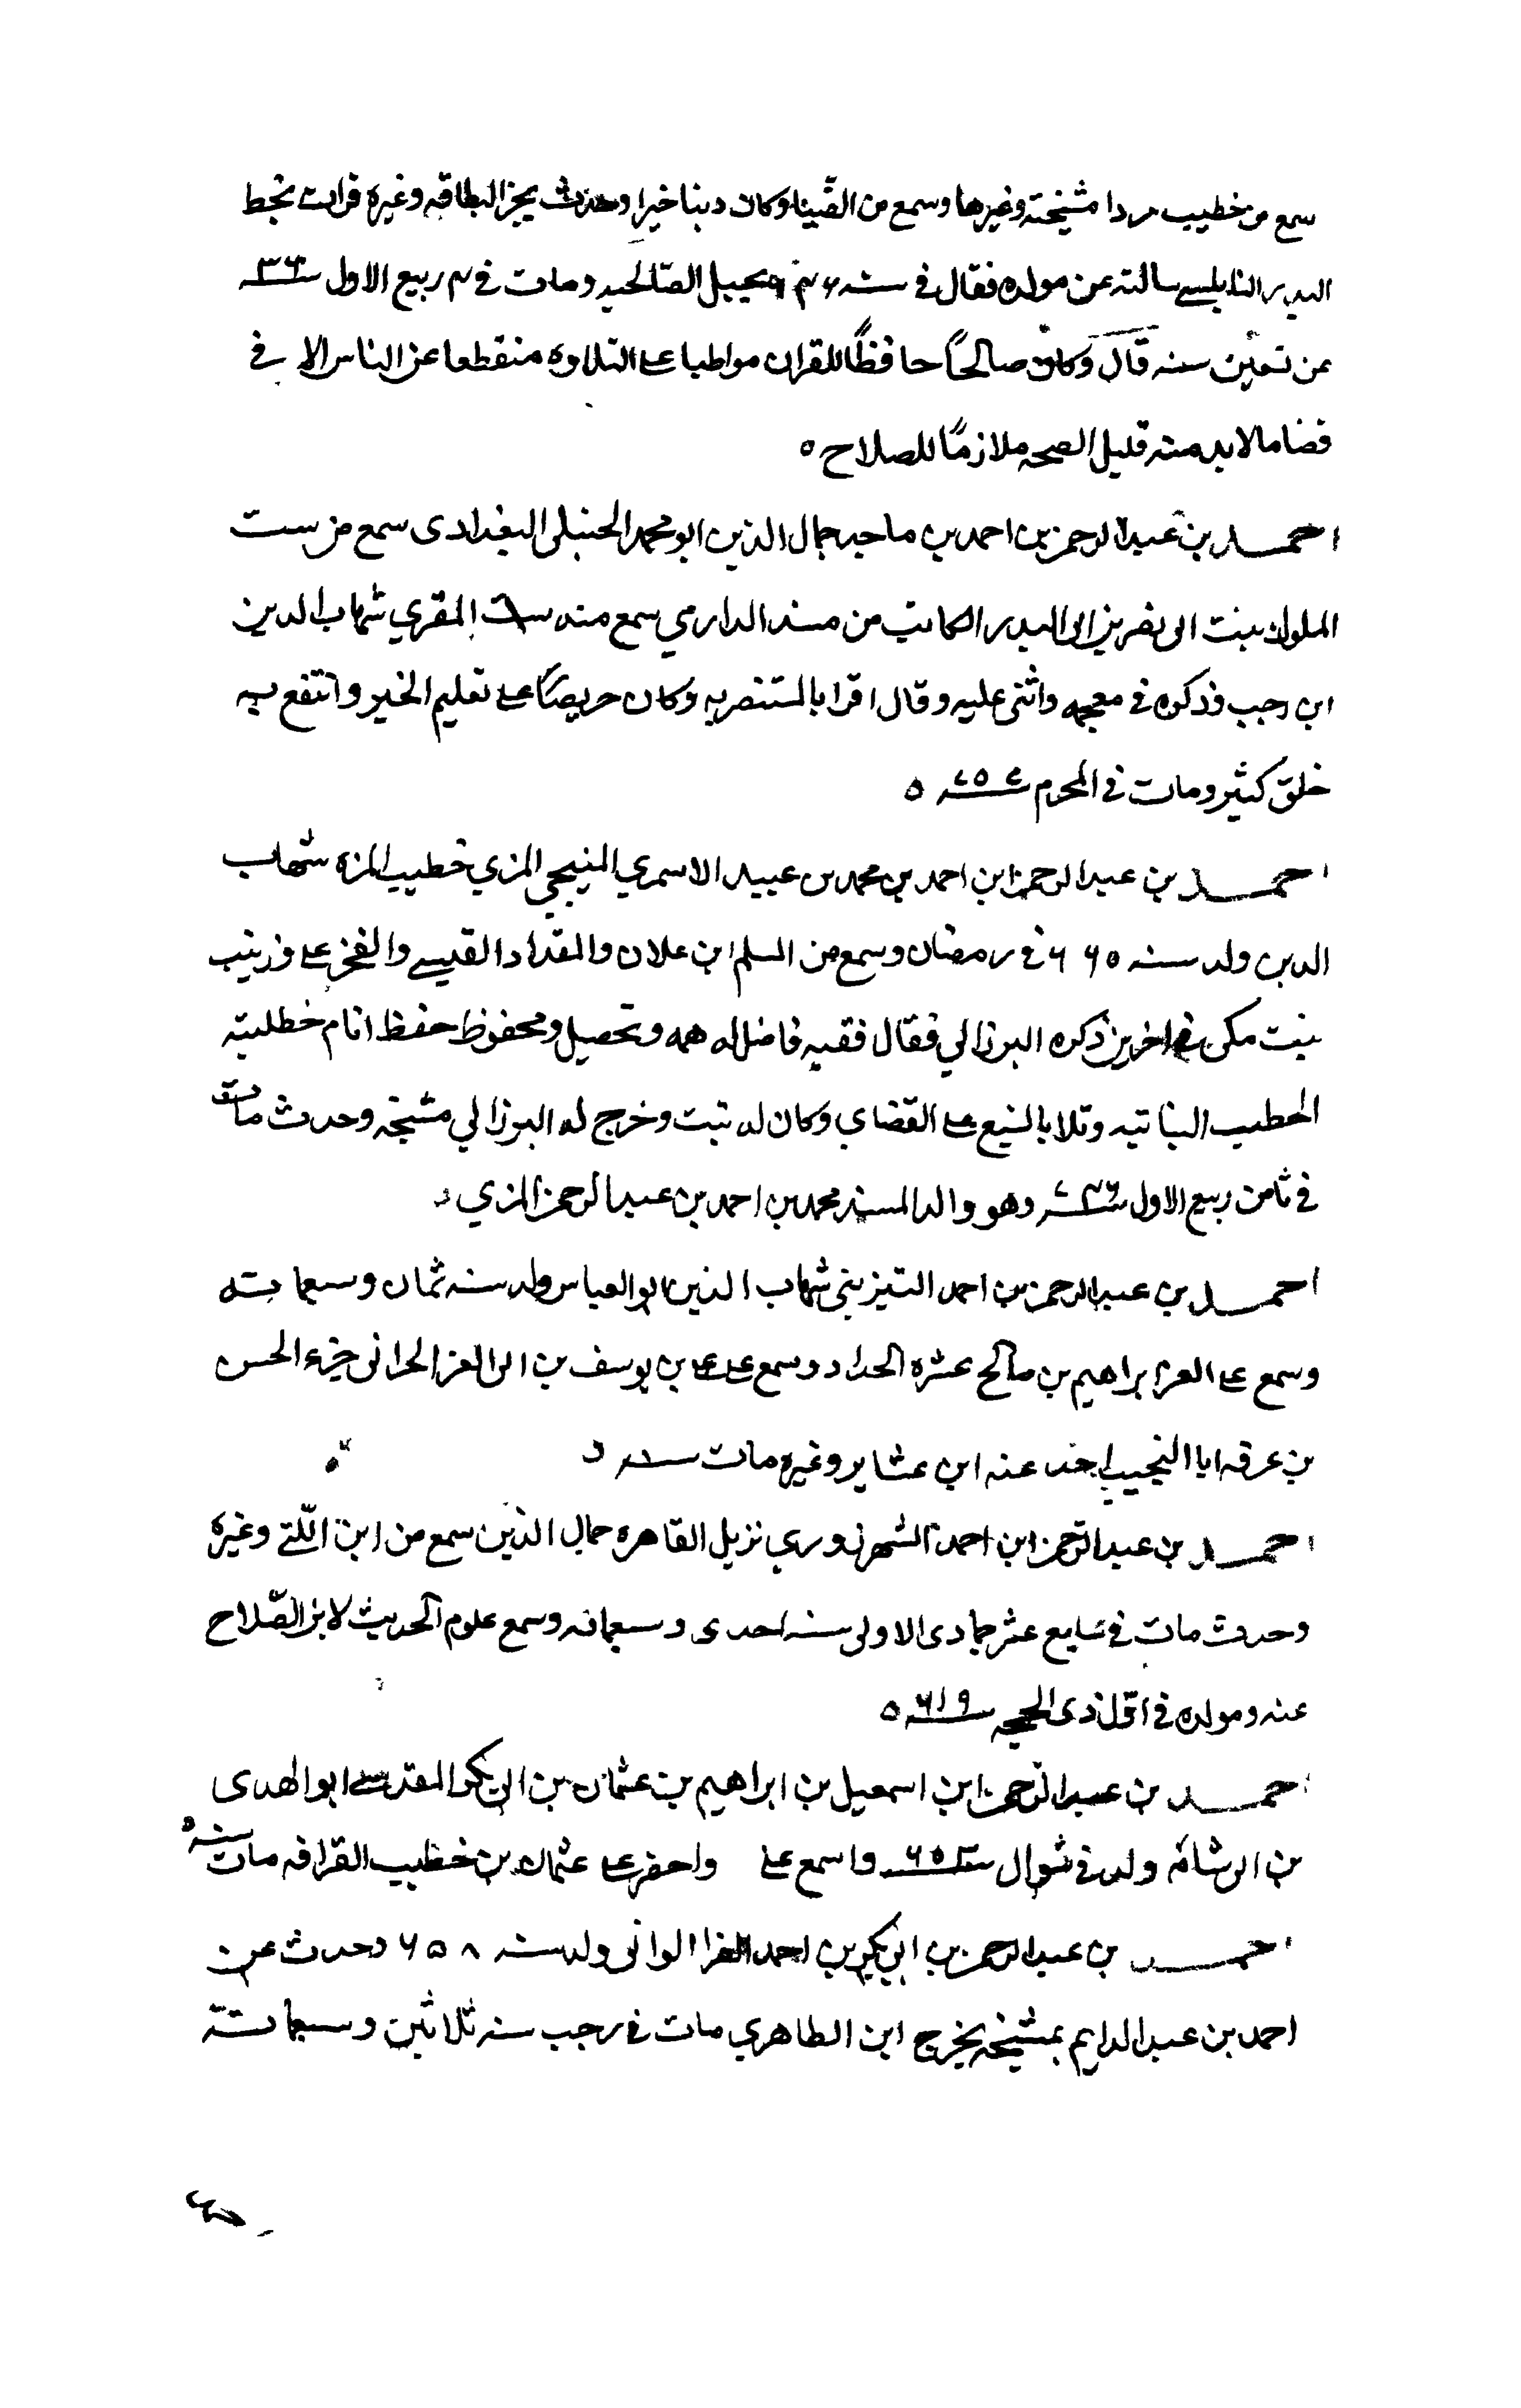 سمع من خطيب مردا مشيخته وغيرها وسمع من الضيا وكان دينا خيرا وحدث بجز البطاقه وغيره قرات بخط
البدر النابلسي سالته عن مولده فقال في سنه بجبل الصالحيه ومات في ربيع الاول سنه ٣٦
عن تسعين سنه قال وكان صالحاً حافظاً للقران مواظبا على التلاوه منقطعا عن الناس الا في
قضا ما لا بد منه قليل الصحبه ملازماً للصلاح ه
احمد بن عبد الرحمن بن احمد بن ماجد جمال الدين ابو محمد الحنبلي البغدادى سمع من ست
الملوك بنت ابى نصر بن ابى البدر الكاتب من مسند الدارمي سمع منه المقري شهاب الدين
ابن رجب وذكره في معجمه واثنى عليه وقال اقرا بالمستنصريه وكان حريصاً على تعليم الخير وانتفع به
خلق كثير ومات في المحرم سنه ه
احمد بن عبد الرحمن ابن احمد بن محمد بن عبيد الاسمري المنبجي المزي خطيب المزه شهاب
الدين ولد سنه ٦٦٥ في رمضان وسمع من المسلم ابن علان والمقداد القيسي والفخر على وزينب
بنت مكى في اخرين ذكره البرزالي فقال فقيه فاضل له همه وتحصيل ومحفوظ حفظ خطبته
الخطب النباتيه وتلا بالسبع على القضاي وكان له ثبت وخرج له البرزالي مشيخه وحدث مات
في ثامن ربيع الاول سنه وهو والد المسند محمد بن احمد بن عبد الرحمن المزي
احمد بن عبد الرحمن بن احمد التيزيني شهاب الدين ابو العباس ولد سنه ثمان وسبعمايه
وسمع على العز ابراهيم بن صالح عشره الحداد وسمع على على بن يوسف بن ابى العز الحرانى جزء الحسن
بن عرفه ابا النجيب اخذ عنه ابن عشاير وغيره مات سنه
احمد بن عبد الرحمن ابن احمد الشهرزوري نزيل القاهره جمال الدين سمع من ابن اللتي وغيره
وحدث مات في سابع عشر جمادى الاولى سنه احدى وسبعمائه وسمع علوم الحديث لابن الصلاح
عنه ومولده في اول ذى الحجه سنه ٦١٩ ه
احمد بن عبد الرحمن ابن اسمعيل بن ابراهيم بن عثمان بن ابى بكر المقدسي ابو الهدى
بن ابى شامه ولد في شوال سنه ٦٥٣ واسمع على واحضر على عثمان بن خطيب القرافه مات سنه
احمد بن عبد الرحمن بن ابي بكر بن احمد الفرا الوانى ولد سنه ٦٥٨ وحدث عن
احمد بن عبد الدايم بمشيخه يخرج ابن الظاهري مات في رجب سنه ثلاثين وسبعمائة